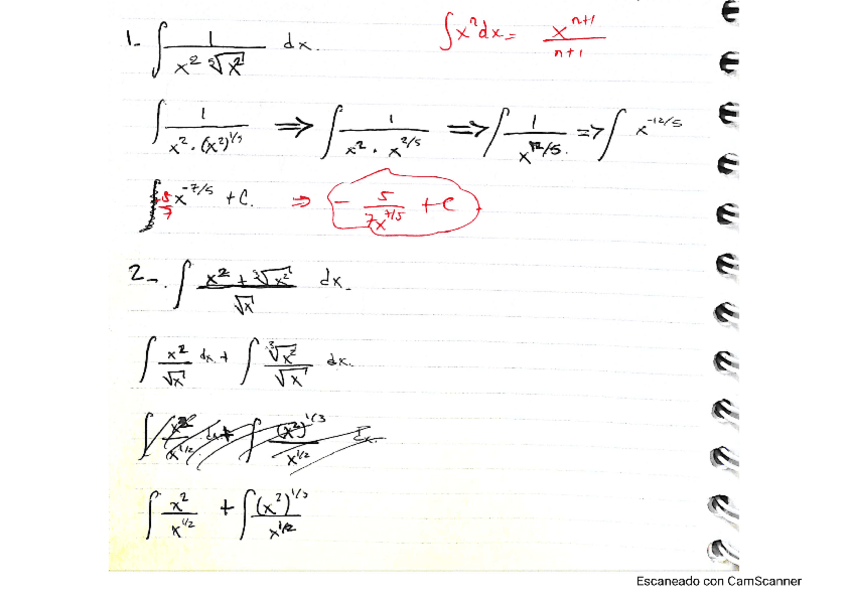 1.- ∫ 1 / (x² ⁵√x²) dx. ∫xⁿdx = xⁿ⁺¹ / n+1
∫ 1 / (x² · (x²)^1/5) ⇒ ∫ 1 / (x² · x^2/5) ⇒ ∫ 1 / x^12/5 ⇒ ∫ x^-12/5
-5/7 x^-7/5 + C. ⇒ - 5 / 7x^7/5 + C
2.- ∫ (x² + ³√x²) / √x dx.
∫ x² / √x dx + ∫ ³√x² / √x dx.
∫ x² / x^1/2 dx + ∫ (x²)^1/3 / x^1/2 dx
∫ x² / x^1/2 + ∫ (x²)^1/3 / x^1/2
Escaneado con CamScanner